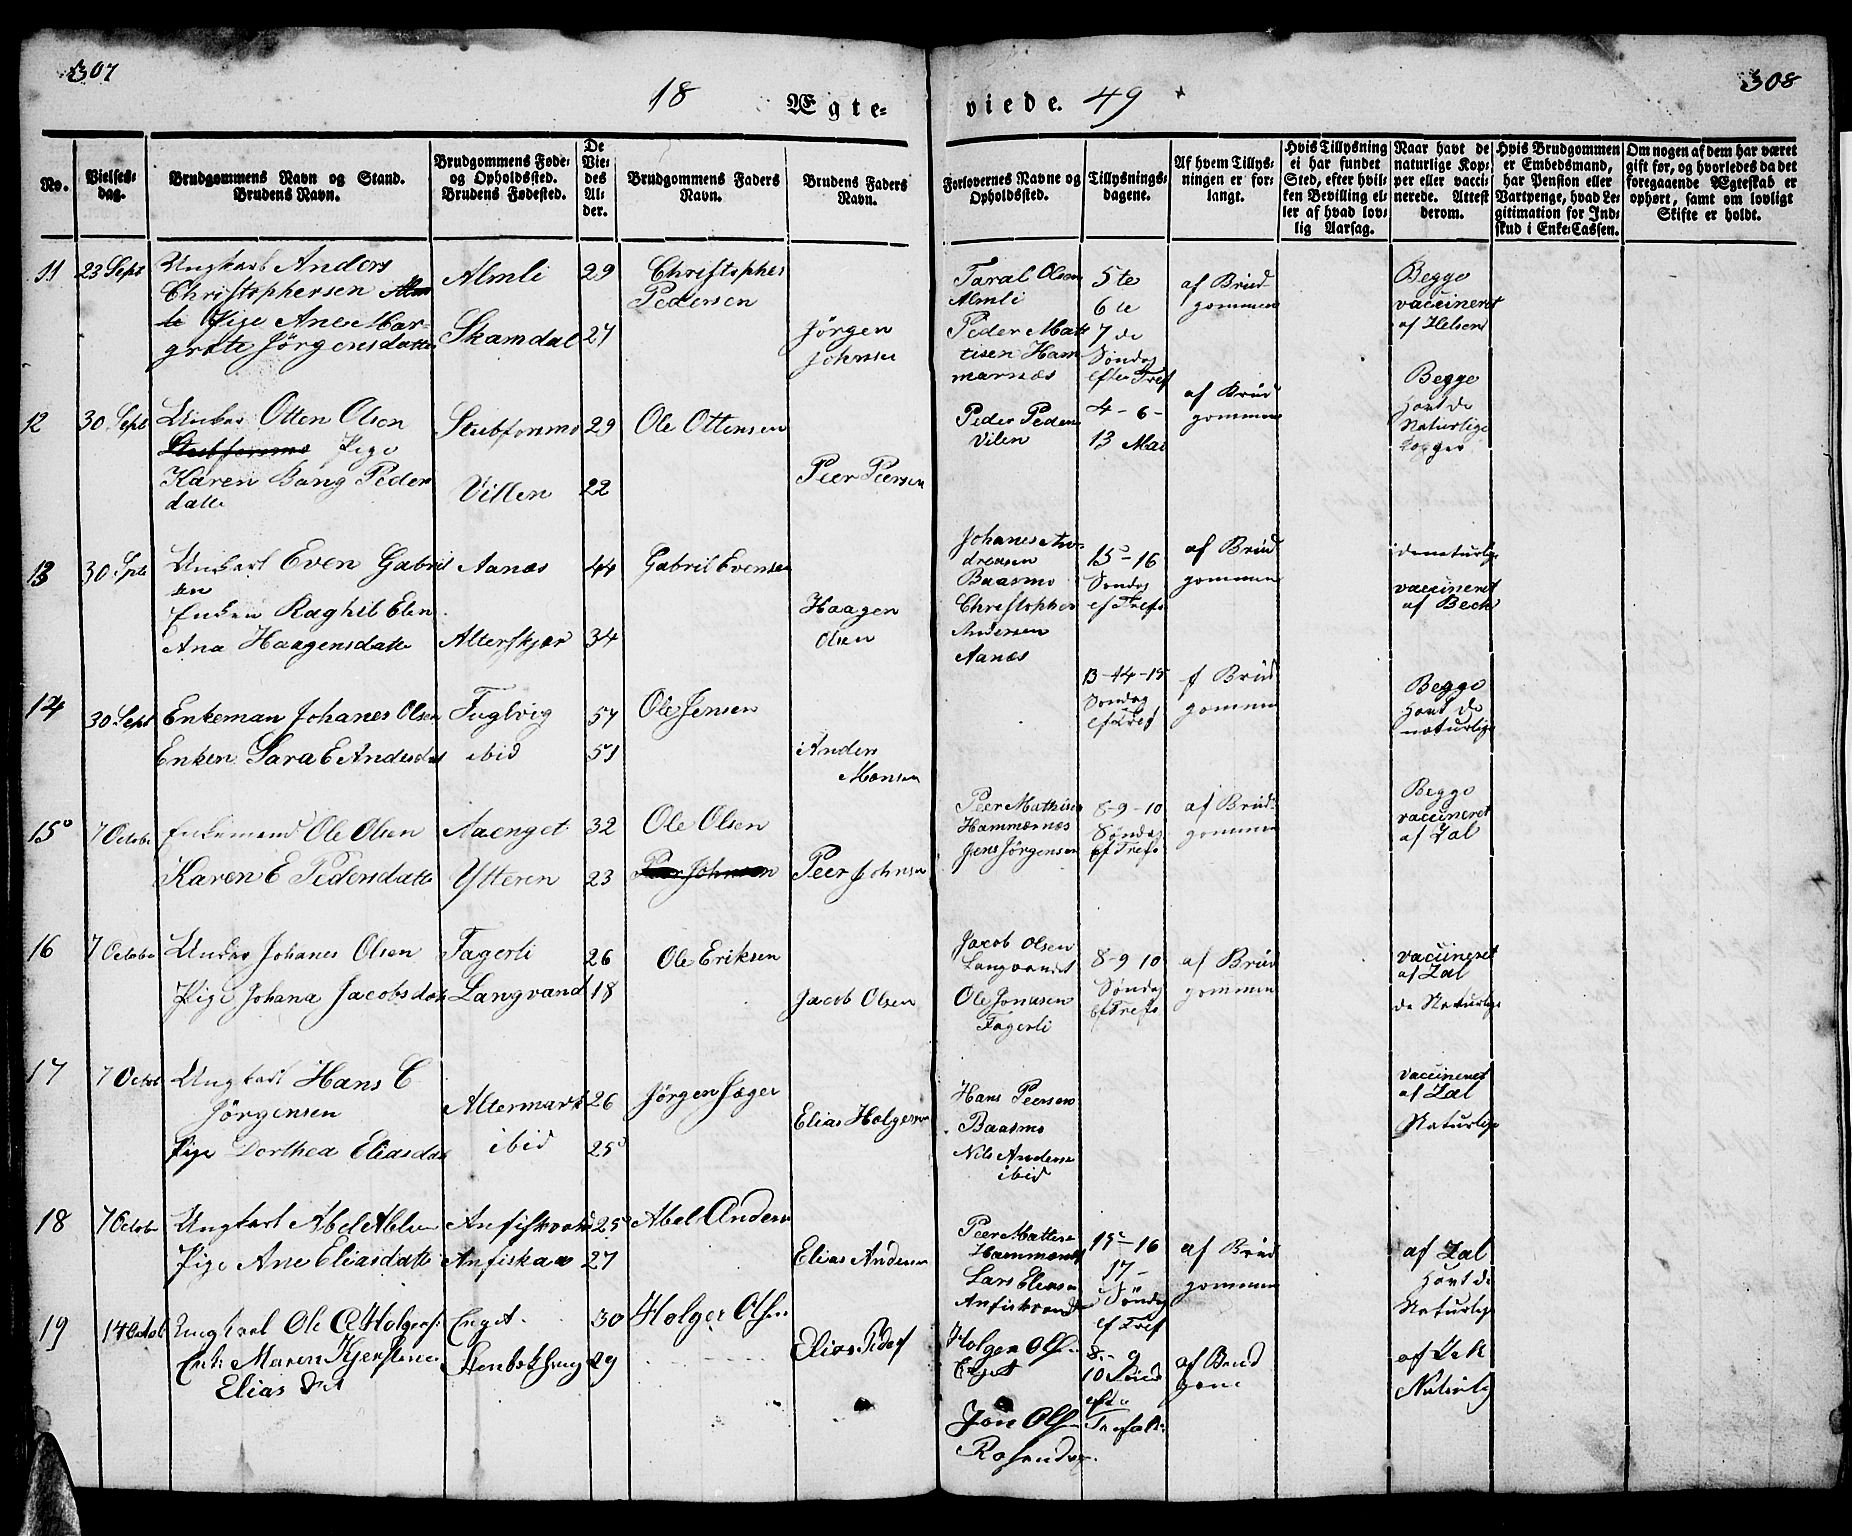 307
308
18 Ægte-
viede. 49
No.
Vielses-
dag.
Brudgommens Navn og Stand.
Brudens Navn.
Brudgommens Føde-
og Opholdssted.
Brudens Fødested.
De
Vie-
des
Al-
der.
Brudgommens Faders
Navn.
Brudens Faders
Navn.
Forlovernes Navne og
Opholdssted.
Tillysnings-
dagene.
Af hvem Tillys-
ningen er for-
langt.
Hvis Tillysning
ei har fundet
Sted, efter hvil-
ken Bevilling el-
ler af hvad lov-
lig Aarsag.
Naar havt de
naturlige Kop-
per eller vacci-
nerede. Attest
derom.
Hvis Brudgommen
er Embedsmand,
har Pension eller
Vartpenge, hvad Le-
gitimation for Ind-
skud i Enke-Cassen.
Om nogen af dem har været
gift før, og hvorledes da det
foregaaende Ægteskab er
ophørt, samt om lovligt
Skifte er holdt.
11 23 Sept
Ungkarl Anders
Christophersen
Pige Ane Mar-
grete Jörgensdatter
Almli
Skamdal
29
27
Christopher
Pedersen
Jörgen
Johnsen
Taral Olsen
Almli
Peder Mat
tisen Ham
marnæs
5te
6te
7de
Søndag
efter Tref
af Brud
gommen
Begge
vaccineret
af Helsen
12 30 Sept
Unkar Otten Olsen
Pige
Karen Bang Peder
datte
Stubformo
Villen
29
22
Ole Ottensen
Peer Peersen
Peder Peders
Vilen
4-6-
13 Mai
af Brud
gommen
Begge
havt de
Naturlige
Kopper
13 30 Spte
Unkarl Even Gabril
sen
Enken Raghil Elen
Ana Haagensdatte
Aanæs
Alterskjær
44
34
Gabril Evensen
Haagen
Olsen
Johanes An-
dreasen
Baasmo
Christopher
Andersen
Aanæs
15-16
Søndag
ef Trefs
af Brud
gommen
de naturlige
vaccineret
af Beck
14 30 Sept
Enkeman Johanes Olsen
Enken Sara E Andersdat
Fuglvig
ibid
57
51
Ole Jensen
Anders
Monsen
13-14-15
Søndag
ef Tref
f Brud
gommen
Begge
havt de
naturlige
15 7 Octobe
Enkemand Ole Olsen
Karen E Pedersdatte
Aaenget
Ytteren
32
23
Ole Olsen
Peer Johnsen
Peer Johnsen
Peer Mathisen
Hammernæs
Jens Jörgensen
8-9-10
Søndag
ef Trefs
af Brud-
gommen
Begge
vaccineret
af Zal
16 7 Octobe
Unkar Johanes Olsen
Pige Johana Jacobsdat
Fagerli
Langvand
26
18
Ole Eriksen
Jacob Olsen
Jacob Olsen
Langvandet
Ole Jonasen
Fagerli
8-9 10
Søndag
ef Trefs
af Brud
gommen
vaccineret
af Zal
de Naturlige
17 7 Octob
Ungkarl Hans C
Jörgensen
Pige Dorthea Eliasdat
Altermark
ibid
26
25
Jörgen Jæger
Elias Holgersen
Hans Peersen
Baasmo
Nils Anderse
ibid
vaccineret
af Zal
Naturlige
18 7 Octobe
Ungkarl Abel Abelsen
Pige Ane Eliasdatte
Anfiskaa
25
27
Abel Anders
Elias Andersen
Peer Mattisen
Hammernæs
Lars Eliasen
Anfiskvand
15-16
17-
Søndag
ef Tref
af Brud
gommen
af Zal
havt de
Naturlige
19 14 Octob
Ungkarl Ole C Holgers:
Maren Kjerstine
Elias Dat
Enget
30
29
Holger Olsen
Elias Peders
Holger Ols-
Enget
Jon Ols-
8-9
10 Sönd
efter
Trefold:
af Brud
gom
Naturlig